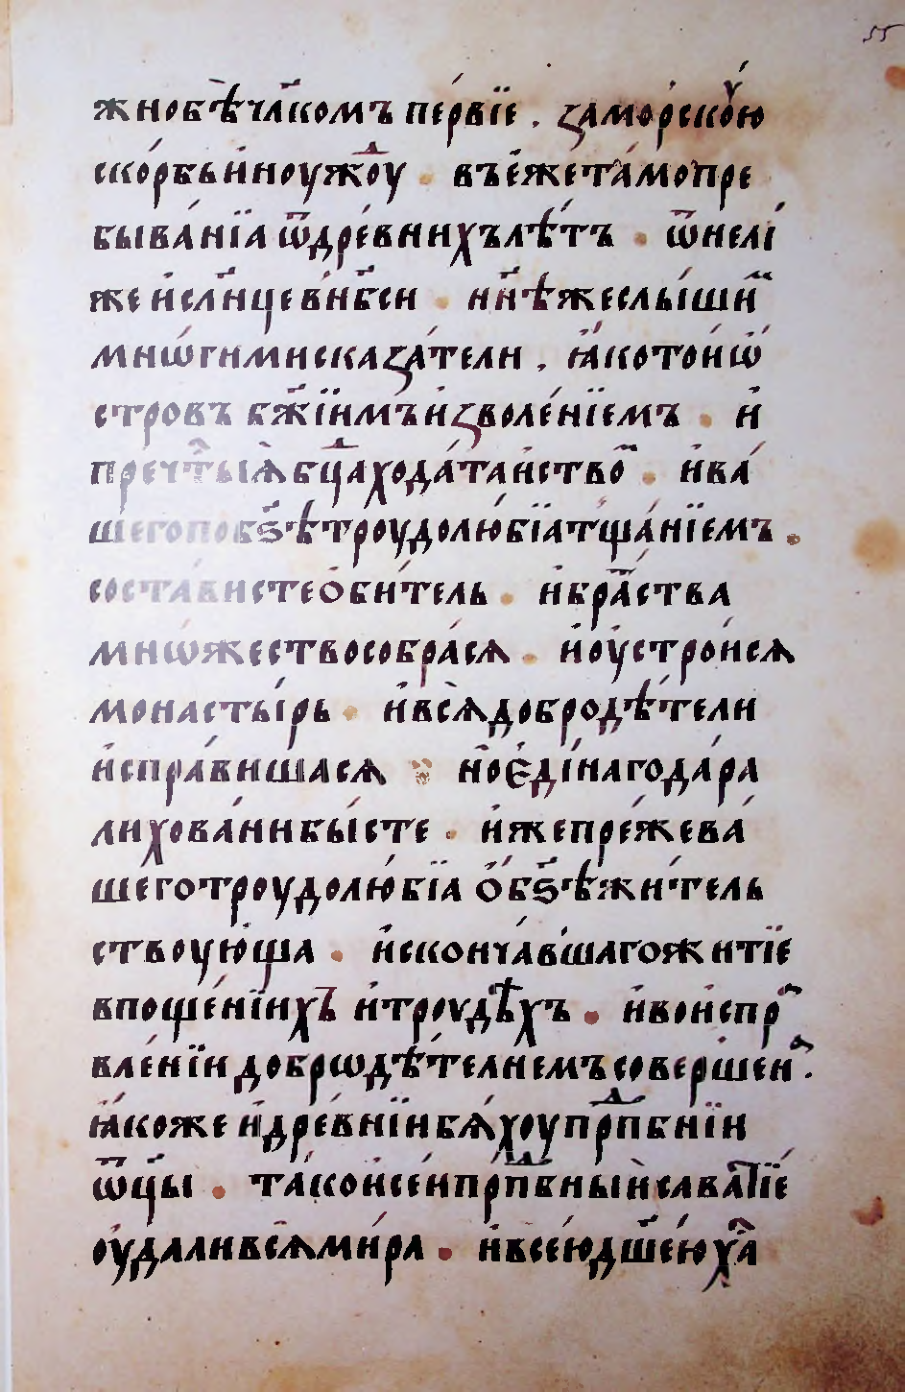 55
жно бѣ чл҃комъ пе́рвїе . заморско́ю
ско́рбьи҆ ноужⷣоу . въ е҆́же та́мо пре
быва́нїа ѿ дре́внихъ лѣ́тъ . ѿнелі́
же и҆ сл҃нце в нб҃си . нн҃ѣ же слы́ши
мнѡ́гими сказа́тели . ꙗ҆́ко то́и ѡ҆́
стровъ бж҃їимъ и҆зволе́нїемъ . и҆
пречⷭ҇тыѧ бцⷣа хода́таиство . и҆ ва́
шего по бз҃ѣ троудолю́бїа тща́нїемъ .
соста́висте ѻ҆би́тель . и҆ бра́тства
мнѡ́жество собра́сѧ . и҆ оу҆стро́исѧ
монасты́рь . и҆ всѧ̀ добродѣ́тели
и҆спра́вишасѧ и҆ о҆ є҆ді́наго да́ра
лихова́ни бы́сте . и҆́же пре́же ва́
шего троудолю́бїа ѻ҆́ бз҃ѣ жи́тель
ствоую҆ща . и҆ сконча́вшаго житїе
в поще́нїихъ и҆ троудѣ́хъ . и҆ во и҆спра
вле́нїи добрѡдѣ́телнемъ соверше́н .
ꙗ҆́коже и҆ дре́внїи бѧ́хоу прпⷣбнїи
ѿц҃ы . та́ко и҆ се́и прпⷣбныи҆ савва́тїе
оу҆дали всѧ̀ ми́ра . и҆ все́ю дш҃е́ю хⷭ҇а